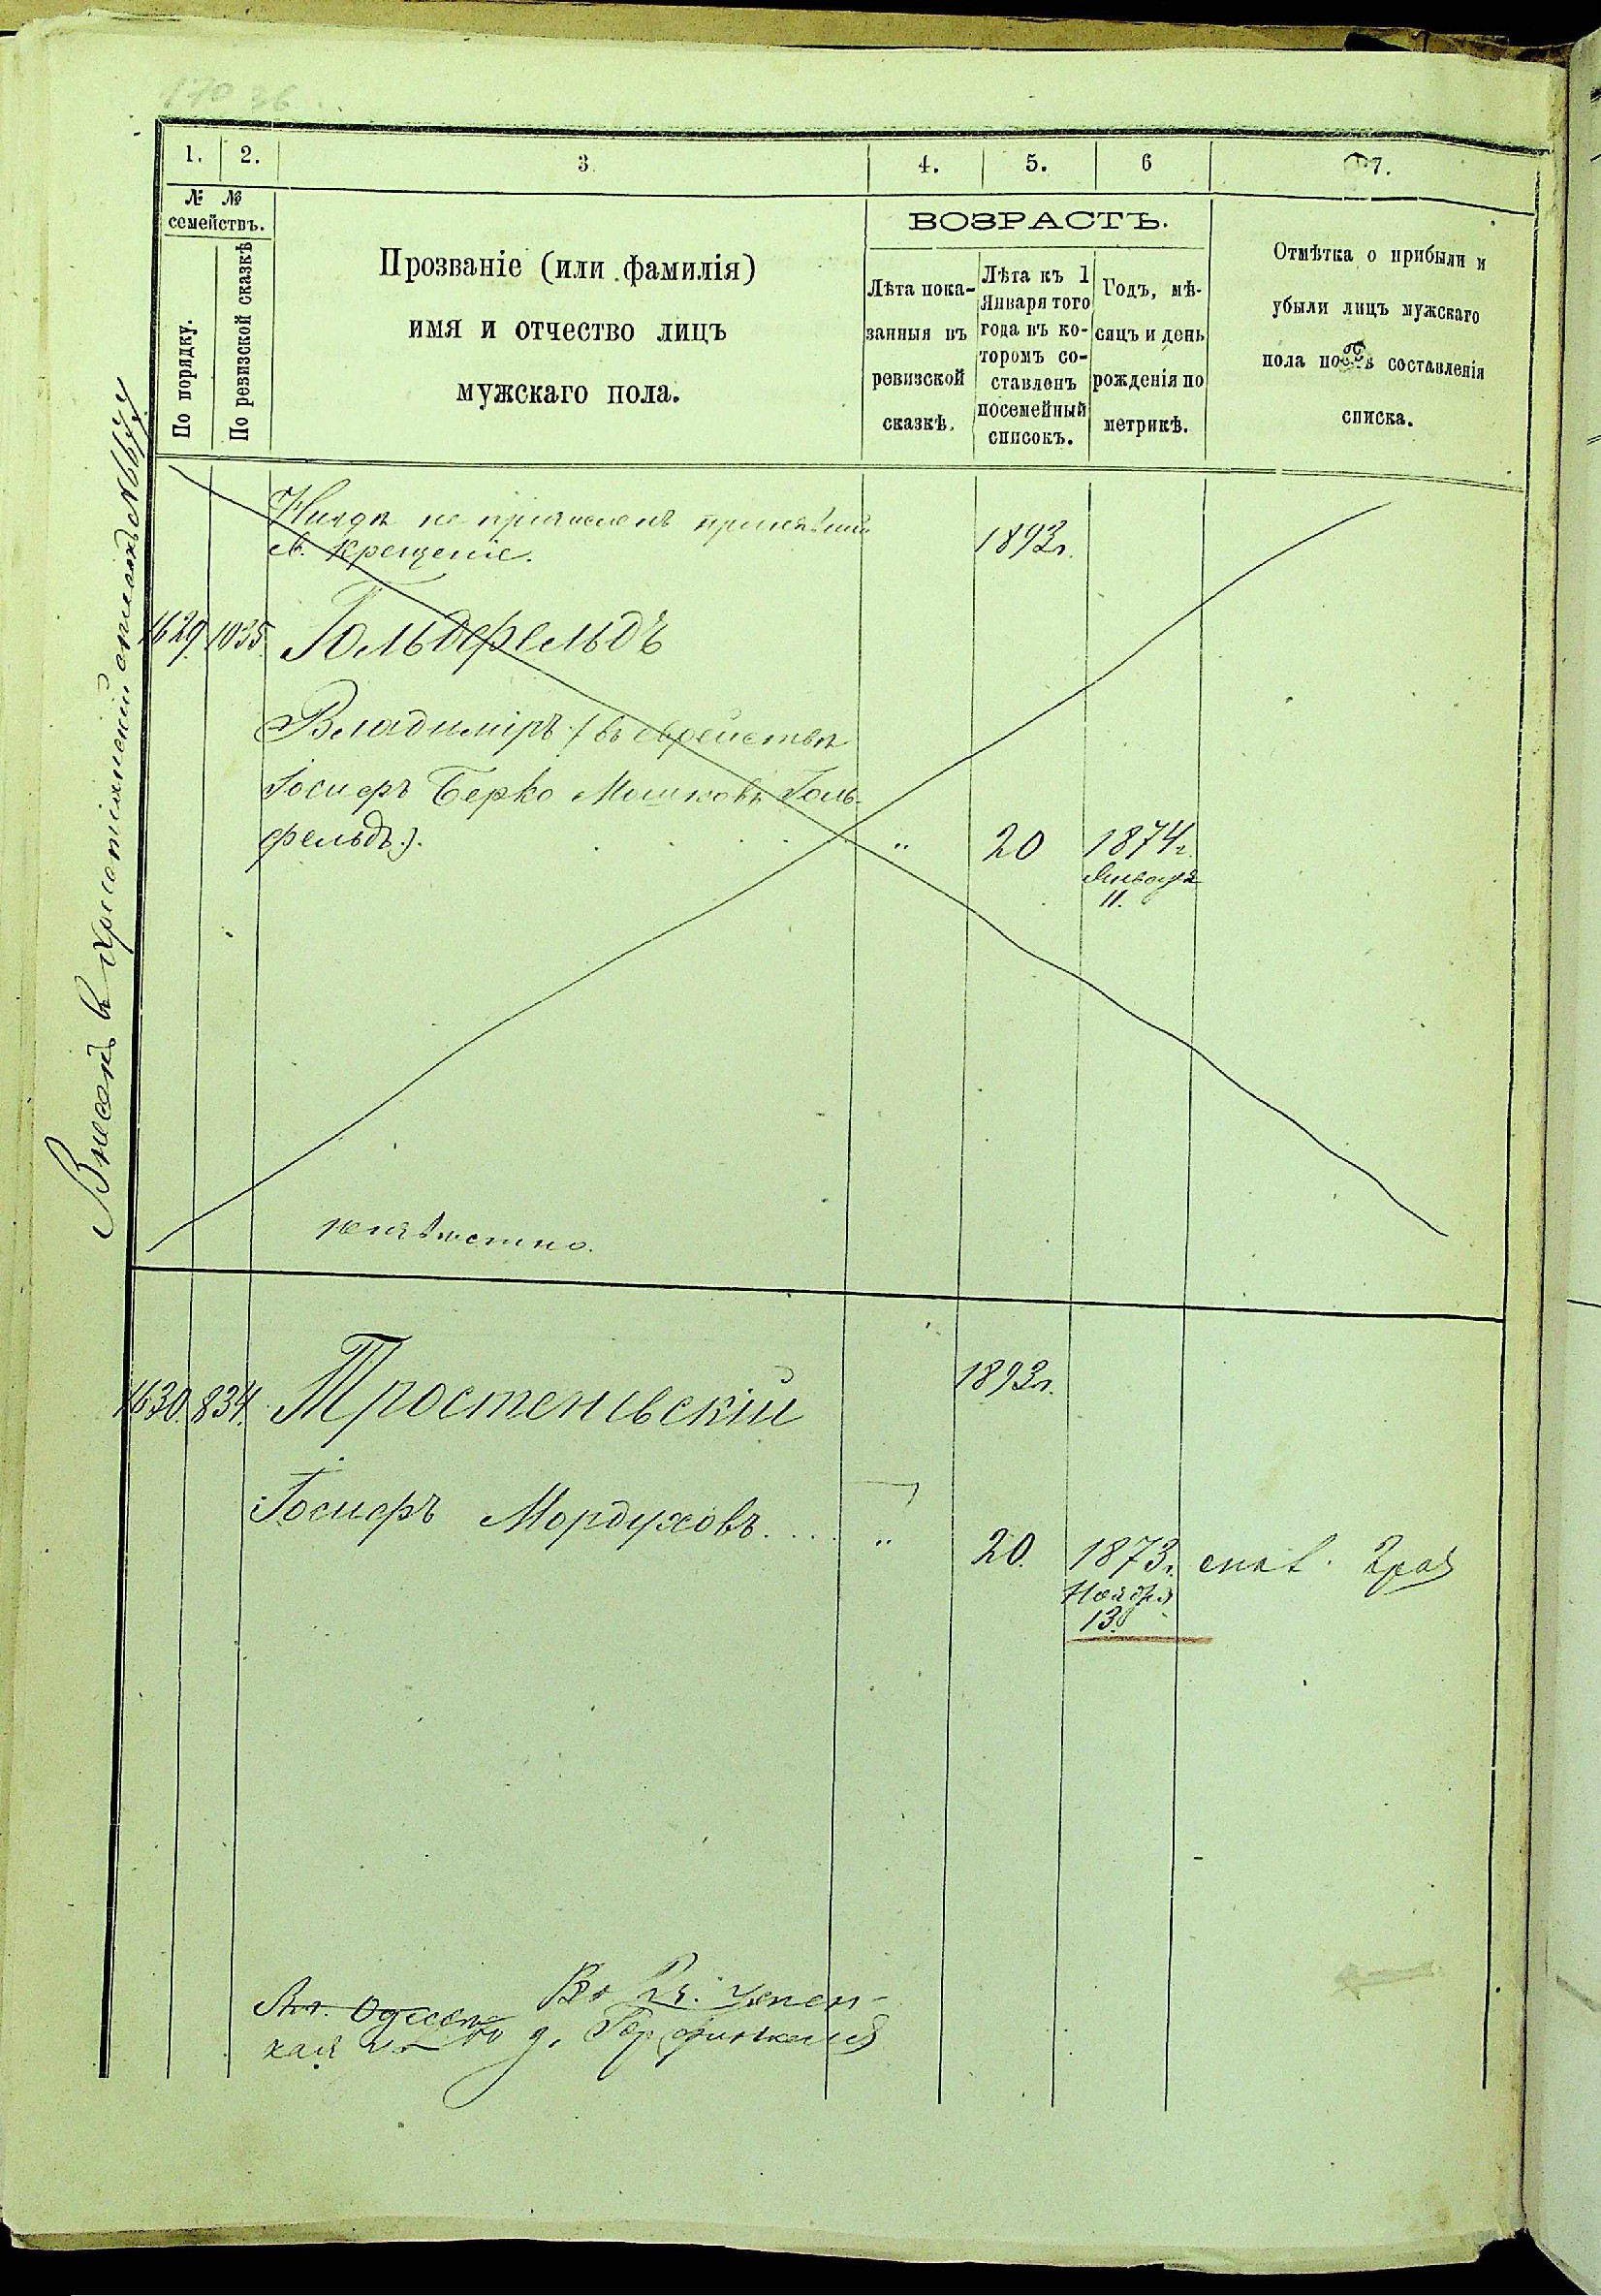 1. 2. 3 4. 5. 6 7.
№ №
семействъ.
По порядку.
По ревизской сказкѣ
Прозваніе (или фамилія)
имя и отчество лицъ
мужскаго пола.
ВОЗРАСТЪ.
Лѣта пока-
занныя въ
ревизской
сказкѣ.
Лѣта къ 1
Января того
года въ ко-
торомъ со-
ставленъ
посемейный
списокъ.
Годъ, мѣ-
сяцъ и день
рожденія по
метрикѣ.
Отмѣтка о прибыли и
убыли лицъ мужскаго
пола послѣ составленія
списка.
Внесенъ въ христіанскій списокъ №
не причисленъ принявшій
св. крещеніе. 1893г.
1629. 1035. Гольдфельдъ
Владиміръ (въ еврействѣ
Іосифъ Берко Мошковъ Голь-
фельдъ). " 20 1874г.
Января
11.
неизвѣстно.
1893г.
1630. 834. Тростеньевскій
Іосифъ Мордуховъ.... " 20. 1873г.
Ноября
13.
Одесса